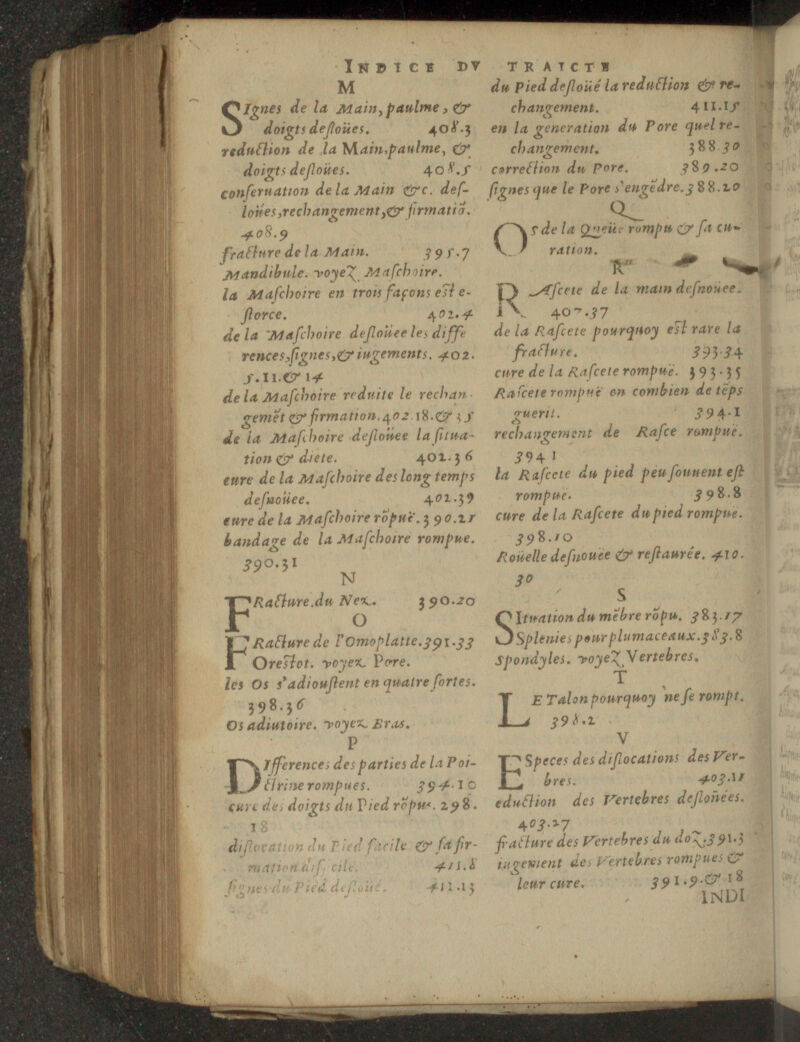 INDICE DV TRAICTE
M
SIgnes de la Main, paulme, &
doigts desloües. 408.3
reduction de la Main, paulme, &
doigts desloües. 408.5
conseruation de la Main &c. des-
loües, rechangement, & firmatiō.
408.9
fracture de la Main. 395.7
Mandibule. voyez Maschoire.
la Maschoire en trois façons est e-
slorce. 402.4
de la Maschoire desloüee les diffe
rences, signes, & iugements. 402.
5.11.& 14
de la Maschoire reduite le rechan-
gemēt & firmation. 402.18.& 35
de la Maschoire desloüee la situa-
tion & diete. 402.36
cure de la Maschoire des long temps
desnoüee. 402.39
cure de la Maschoire rōpuë. 390.21
bandage de la Maschoire rompue.
390.31
N
FRacture.du Nez. 390.20
O
FRacture de l'Omoplatte. 391.33
Orestot. voyez Pore.
les Os s'adioustent en quatre sortes.
398.36
Os adiutoire. voyez Bras.
P
DIfferences des parties de la Poi-
ctrine rompues. 394.10
cure des doigts du Pied rōpus. 298.
18
dislocation du Pied facile & sa fir-
mation difficile. 411.8
signes du Pied desloüé. 411.13
du Pied desloüé la reduction & re-
changement. 411.15
en la generation du Pore quel re-
changement. 388.30
correction du Pore. 389.20
signes que le Pore s'engēdre. 388.20
Q
OS de la Queüe rompu & sa cu-
ration.
R
RAscete de la main desnouee.
407.37
de la Rascete pourquoy est rare la
fracture. 393.34
cure de la Rascete rompuë. 393.35
Rascete rompuë en combien de tēps
guerit. 394.1
rechangement de Rasce rompuë.
394 1
la Rascete du pied peu souuent est
rompue. 398.8
cure de la Rascete du pied rompue.
398.10
Roüelle desnouee & restaurée. 410.
30
S
SItuation du mēbre rōpu. 383.17
Splenies pour plumaceaux. 383.8
Spondyles. voyez Vertebres.
T
LE Talon pourquoy ne se rompt.
398.2
V
ESpeces des dislocations des Ver-
bres. 403.11
eduction des Vertebres desloñees.
403.27
fracture des Vertebres du doz. 391.3
iugement des Vertebres rompues &
leur cure. 391.9.& 18
INDI